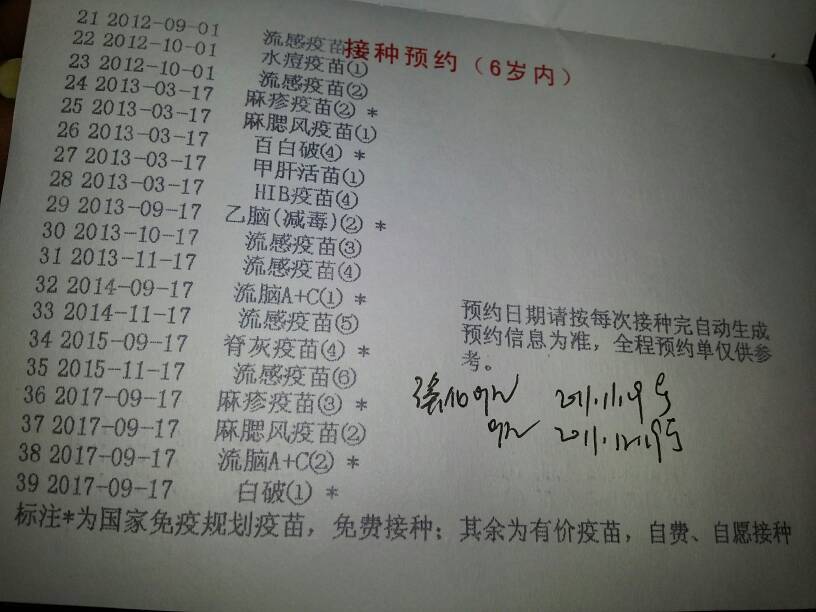 接种预约（6岁内）
21 2012-09-01 流感疫苗
22 2012-10-01 水痘疫苗①
23 2012-10-01 流感疫苗②
24 2013-03-17 麻疹疫苗② *
25 2013-03-17 麻腮风疫苗①
26 2013-03-17 百白破④ *
27 2013-03-17 甲肝活苗①
28 2013-03-17 HIB疫苗④
29 2013-09-17 乙脑(减毒)② *
30 2013-10-17 流感疫苗③
31 2013-11-17 流感疫苗④
32 2014-09-17 流脑A+C① *
33 2014-11-17 流感疫苗⑤
34 2015-09-17 脊灰疫苗④ *
35 2015-11-17 流感疫苗⑥
36 2017-09-17 麻疹疫苗③ *
37 2017-09-17 麻腮风疫苗②
38 2017-09-17 流脑A+C② *
39 2017-09-17 白破① *
预约日期请按每次接种完自动生成
预约信息为准，全程预约单仅供参
考。
2011.11.19号
2011.12.19号
标注*为国家免疫规划疫苗，免费接种；其余为有价疫苗，自费、自愿接种